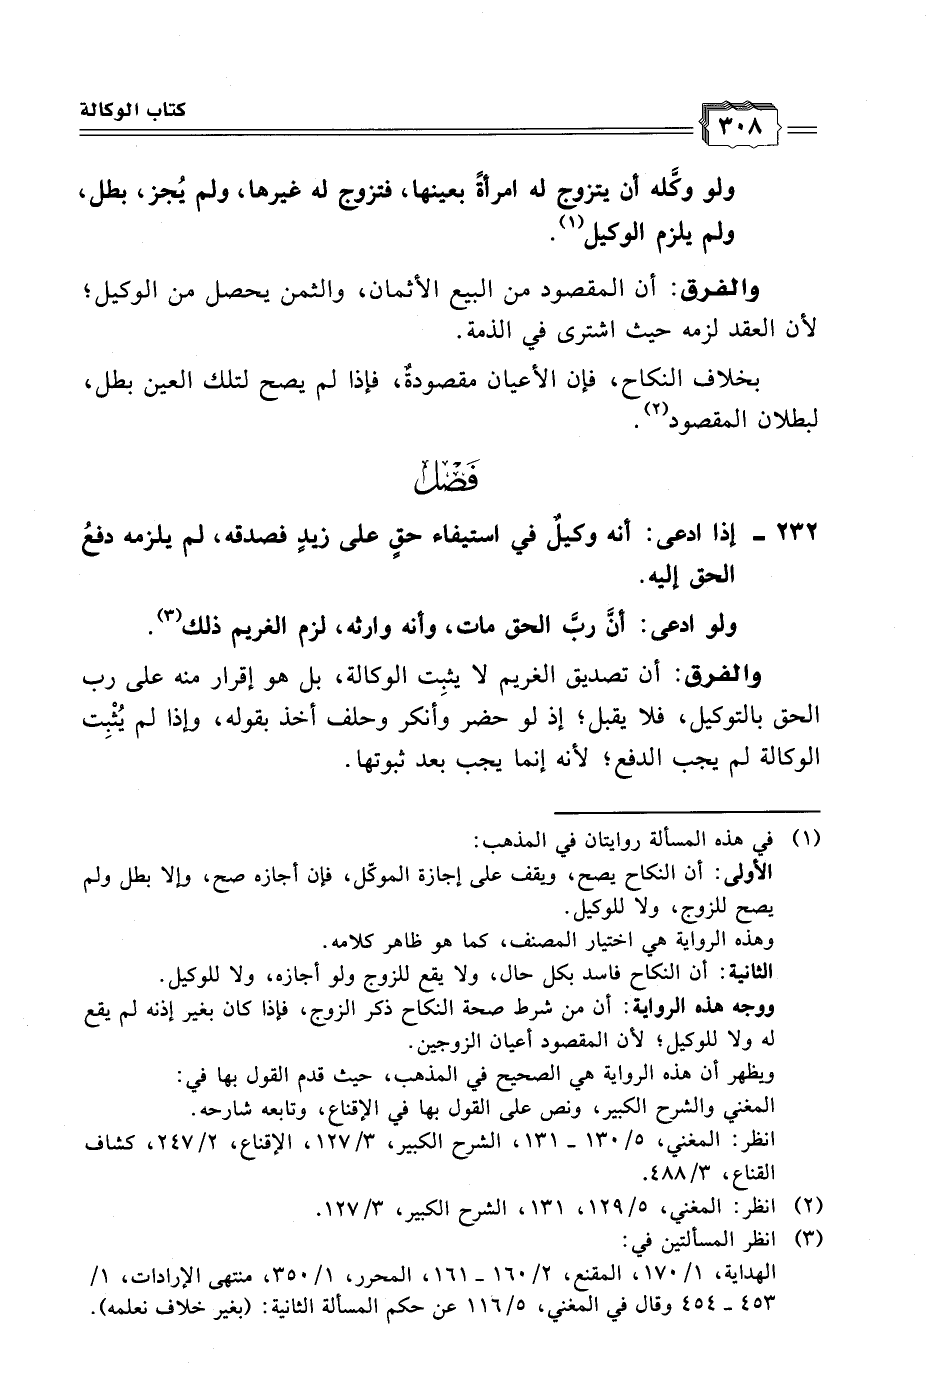 ٣٠٨
كتاب الوكالة
ولو وكَّله أن يتزوج له امرأةً بعينها، فتزوج له غيرها، ولم يُجز، بطل،
ولم يلزم الوكيل(١).
والفرق: أن المقصود من البيع الأثمان، والثمن يحصل من الوكيل؛
لأن العقد لزمه حيث اشترى في الذمة.
بخلاف النكاح، فإن الأعيان مقصودةٌ، فإذا لم يصح لتلك العين بطل،
لبطلان المقصود(٢).
فَصْل
٢٣٢ ـ إذا ادعى: أنه وكيلٌ في استيفاء حقٍ على زيدٍ فصدقه، لم يلزمه دفعُ
الحق إليه.
ولو ادعى: أنَّ ربَّ الحق مات، وأنه وارثه، لزم الغريم ذلك(٣).
والفرق: أن تصديق الغريم لا يثبِت الوكالة، بل هو إقرار منه على رب
الحق بالتوكيل، فلا يقبل؛ إذ لو حضر وأنكر وحلف أخذ بقوله، وإذا لم يُثْبِت
الوكالة لم يجب الدفع؛ لأنه إنما يجب بعد ثبوتها.
(١) في هذه المسألة روايتان في المذهب:
الأولى: أن النكاح يصح، ويقف على إجازة الموكّل، فإن أجازه صح، وإلا بطل ولم
يصح للزوج، ولا للوكيل.
وهذه الرواية هي اختيار المصنف، كما هو ظاهر كلامه.
الثانية: أن النكاح فاسد بكل حال، ولا يقع للزوج ولو أجازه، ولا للوكيل.
ووجه هذه الرواية: أن من شرط صحة النكاح ذكر الزوج، فإذا كان بغير إذنه لم يقع
له ولا للوكيل؛ لأن المقصود أعيان الزوجين.
ويظهر أن هذه الرواية هي الصحيح في المذهب، حيث قدم القول بها في:
المغني والشرح الكبير، ونص على القول بها في الإقناع، وتابعه شارحه.
انظر: المغني، ١٣٠/٥ ـ ١٣١، الشرح الكبير، ١٢٧/٣، الإقناع، ٢٤٧/٢، كشاف
القناع، ٤٨٨/٣.
(٢) انظر: المغني، ١٢٩/٥، ١٣١، الشرح الكبير، ١٢٧/٣.
(٣) انظر المسألتين في:
الهداية، ١٧٠/١، المقنع، ١٦٠/٢ ـ ١٦١، المحرر، ٣٥٠/١، منتهى الإرادات، ١/
٤٥٣ ـ ٤٥٤ وقال في المغني، ١١٦/٥ عن حكم المسألة الثانية: (بغير خلاف نعلمه).